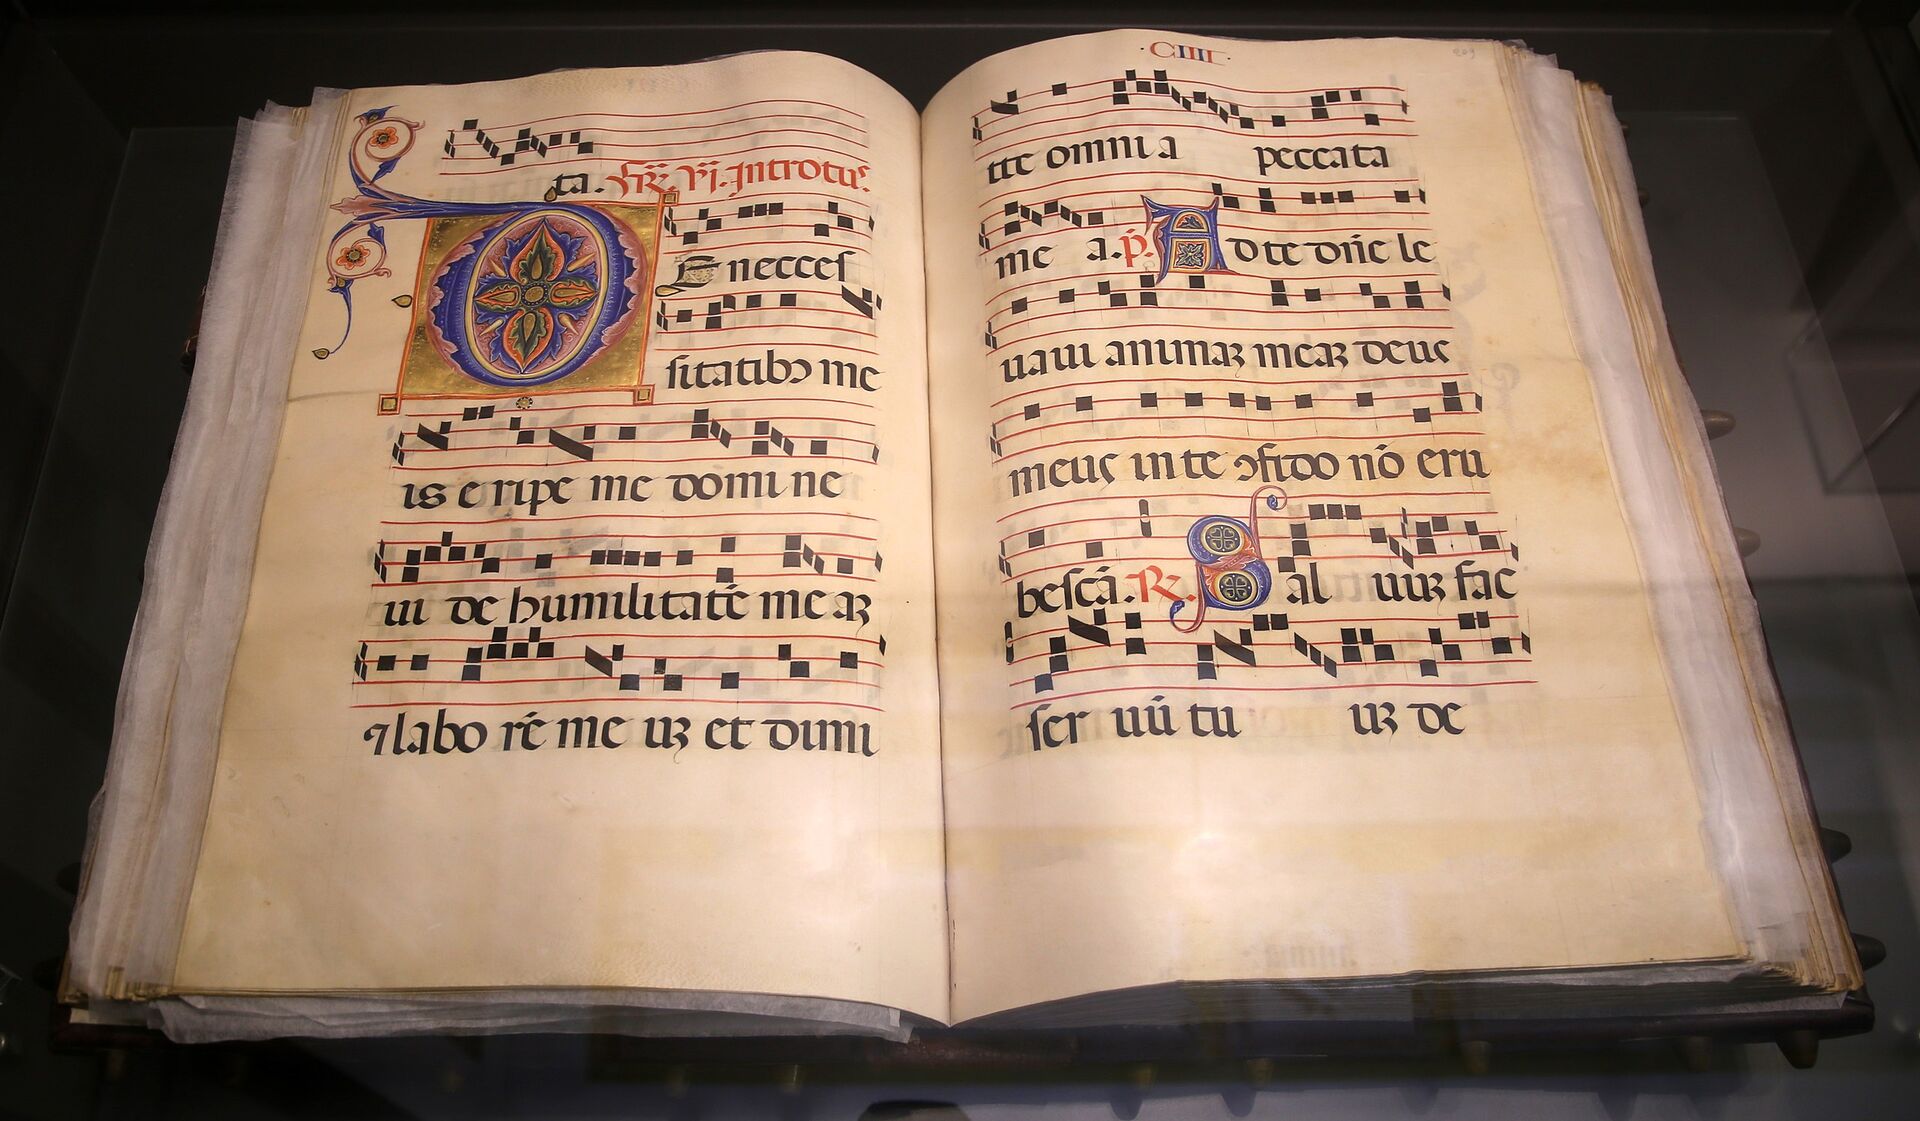 ta. Fr. vj. Introtus.
DE necces
sitatibꝰ me
is e ripe me domi ne
ui de humilitatē me aꝫ
⁊ labo rē me uꝫ et dimi
CIIII
tte omni a peccata
me a. p̄. Ad te dn̄e le
uaui animaꝫ meaꝫ deus
meus in te ꝯfido nō eru
bescā. R. Sal uuꝫ fac
ser uū tu uꝫ de